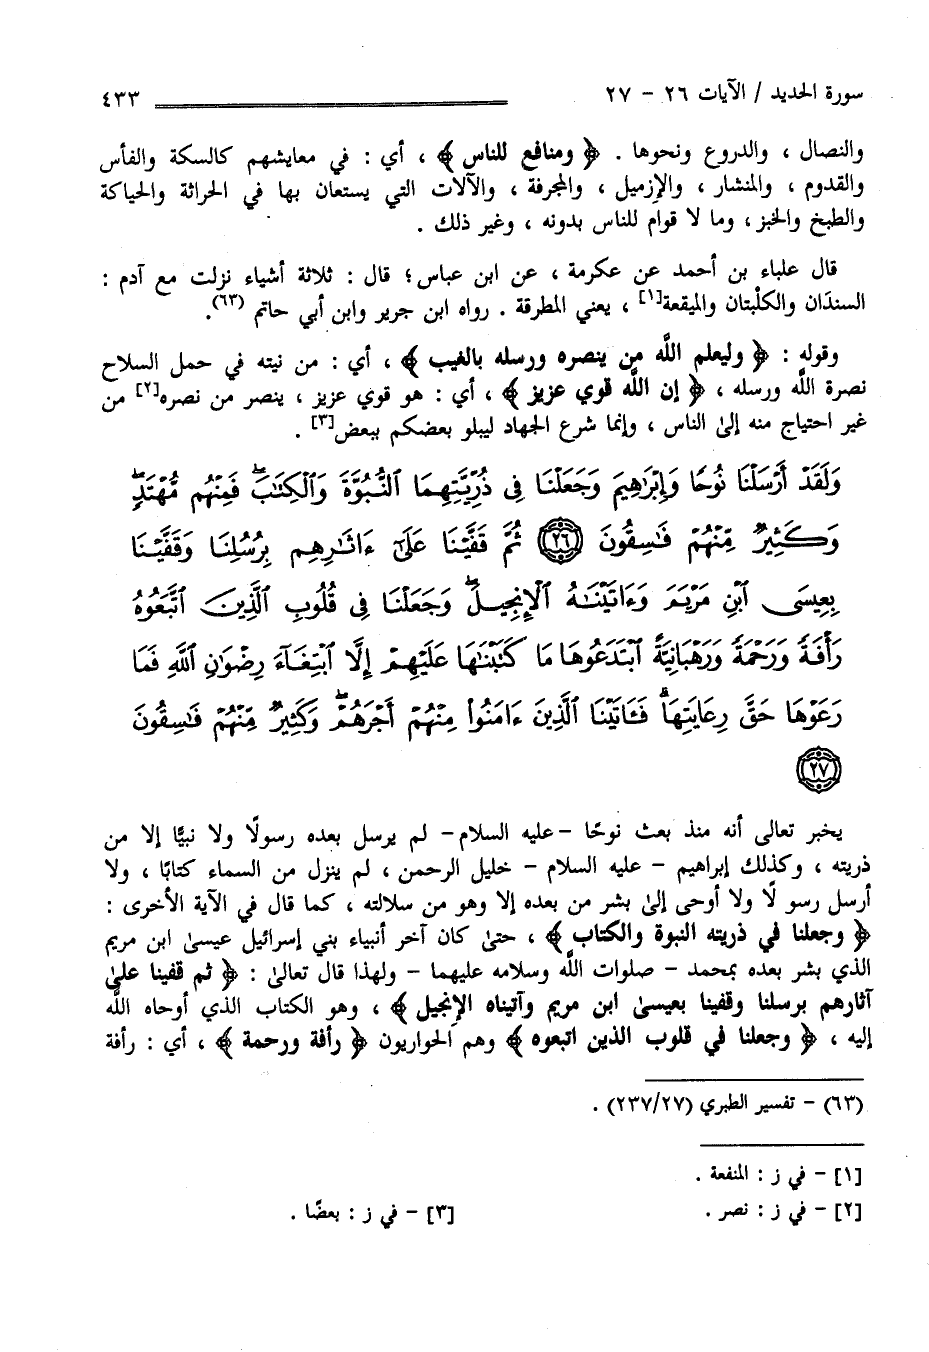 سورة الحديد / الآيات ٢٦ - ٢٧ ٤٣٣
والنصال ، والدروع ونحوها . ﴿ ومنافع للناس ﴾ ، أي : في معايشهم كالسكة والفأس
والقدوم ، والمنشار ، والإزميل ، والمجرفة ، والآلات التي يستعان بها في الحراثة والحياكة
والطبخ والخبز ، وما لا قوام للناس بدونه ، وغير ذلك .
قال علباء بن أحمد عن عكرمة ، عن ابن عباس ؛ قال : ثلاثة أشياء نزلت مع آدم :
السندَان والكلْبتان والميقعة[١] ، يعني المطرقة . رواه ابن جرير وابن أبي حاتم (٦٣).
وقوله : ﴿ وليعلم اللَّه من ينصره ورسله بالغيب ﴾ ، أي : من نيته في حمل السلاح
نصرة اللَّه ورسله ، ﴿ إن اللَّه قوي عزيز ﴾ ، أي : هو قوي عزيز ، ينصر من نصره[٢] من
غير احتياج منه إلىٰ الناس ، وإنما شرع الجهاد ليبلو بعضكم ببعض[٣] .
وَلَقَدْ أَرْسَلْنَا نُوحًا وَإِبْرَٰهِيمَ وَجَعَلْنَا فِى ذُرِّيَّتِهِمَا ٱلنُّبُوَّةَ وَٱلْكِتَٰبَ ۖ فَمِنْهُم مُّهْتَدٍ ۖ
وَكَثِيرٌ مِّنْهُمْ فَٰسِقُونَ ٢٦ ثُمَّ قَفَّيْنَا عَلَىٰٓ ءَاثَٰرِهِم بِرُسُلِنَا وَقَفَّيْنَا
بِعِيسَى ٱبْنِ مَرْيَمَ وَءَاتَيْنَٰهُ ٱلْإِنجِيلَ ۖ وَجَعَلْنَا فِى قُلُوبِ ٱلَّذِينَ ٱتَّبَعُوهُ
رَأْفَةً وَرَحْمَةً وَرَهْبَانِيَّةً ٱبْتَدَعُوهَا مَا كَتَبْنَٰهَا عَلَيْهِمْ إِلَّا ٱبْتِغَآءَ رِضْوَٰنِ ٱللَّهِ فَمَا
رَعَوْهَا حَقَّ رِعَايَتِهَا ۖ فَـَٔاتَيْنَا ٱلَّذِينَ ءَامَنُوا۟ مِنْهُمْ أَجْرَهُمْ ۖ وَكَثِيرٌ مِّنْهُمْ فَٰسِقُونَ
٢٧
يخبر تعالى أنه منذ بعث نوحًا -عليه السلام- لم يرسل بعده رسولًا ولا نبيًّا إلا من
ذريته ، وكذلك إبراهيم - عليه السلام - خليل الرحمن ، لم ينزل من السماء كتابًا ، ولا
أرسل رسو لًا ولا أوحى إلىٰ بشر من بعده إلا وهو من سلالته ، كما قال في الآية الأخرى :
﴿ وجعلنا في ذريته النبوة والكتاب ﴾ ، حتىٰ كان آخر أنبياء بني إسرائيل عيسىٰ ابن مريم
الذي بشر بعده بمحمد - صلوات اللَّه وسلامه عليهما - ولهذا قال تعالىٰ : ﴿ ثم قفينا علىٰ
آثارهم برسلنا وقفينا بعيسىٰ ابن مريم وآتيناه الإنجيل ﴾ ، وهو الكتاب الذي أوحاه اللَّه
إليه ، ﴿ وجعلنا في قلوب الذين اتبعوه ﴾ وهم الحواريون ﴿ رأفة ورحمة ﴾ ، أي : رأفة
(٦٣) - تفسير الطبري (٢٣٧/٢٧) .
[١] - في ز : المنفعة .
[٢] - في ز : نصر . [٣] - في ز : بعضًا .